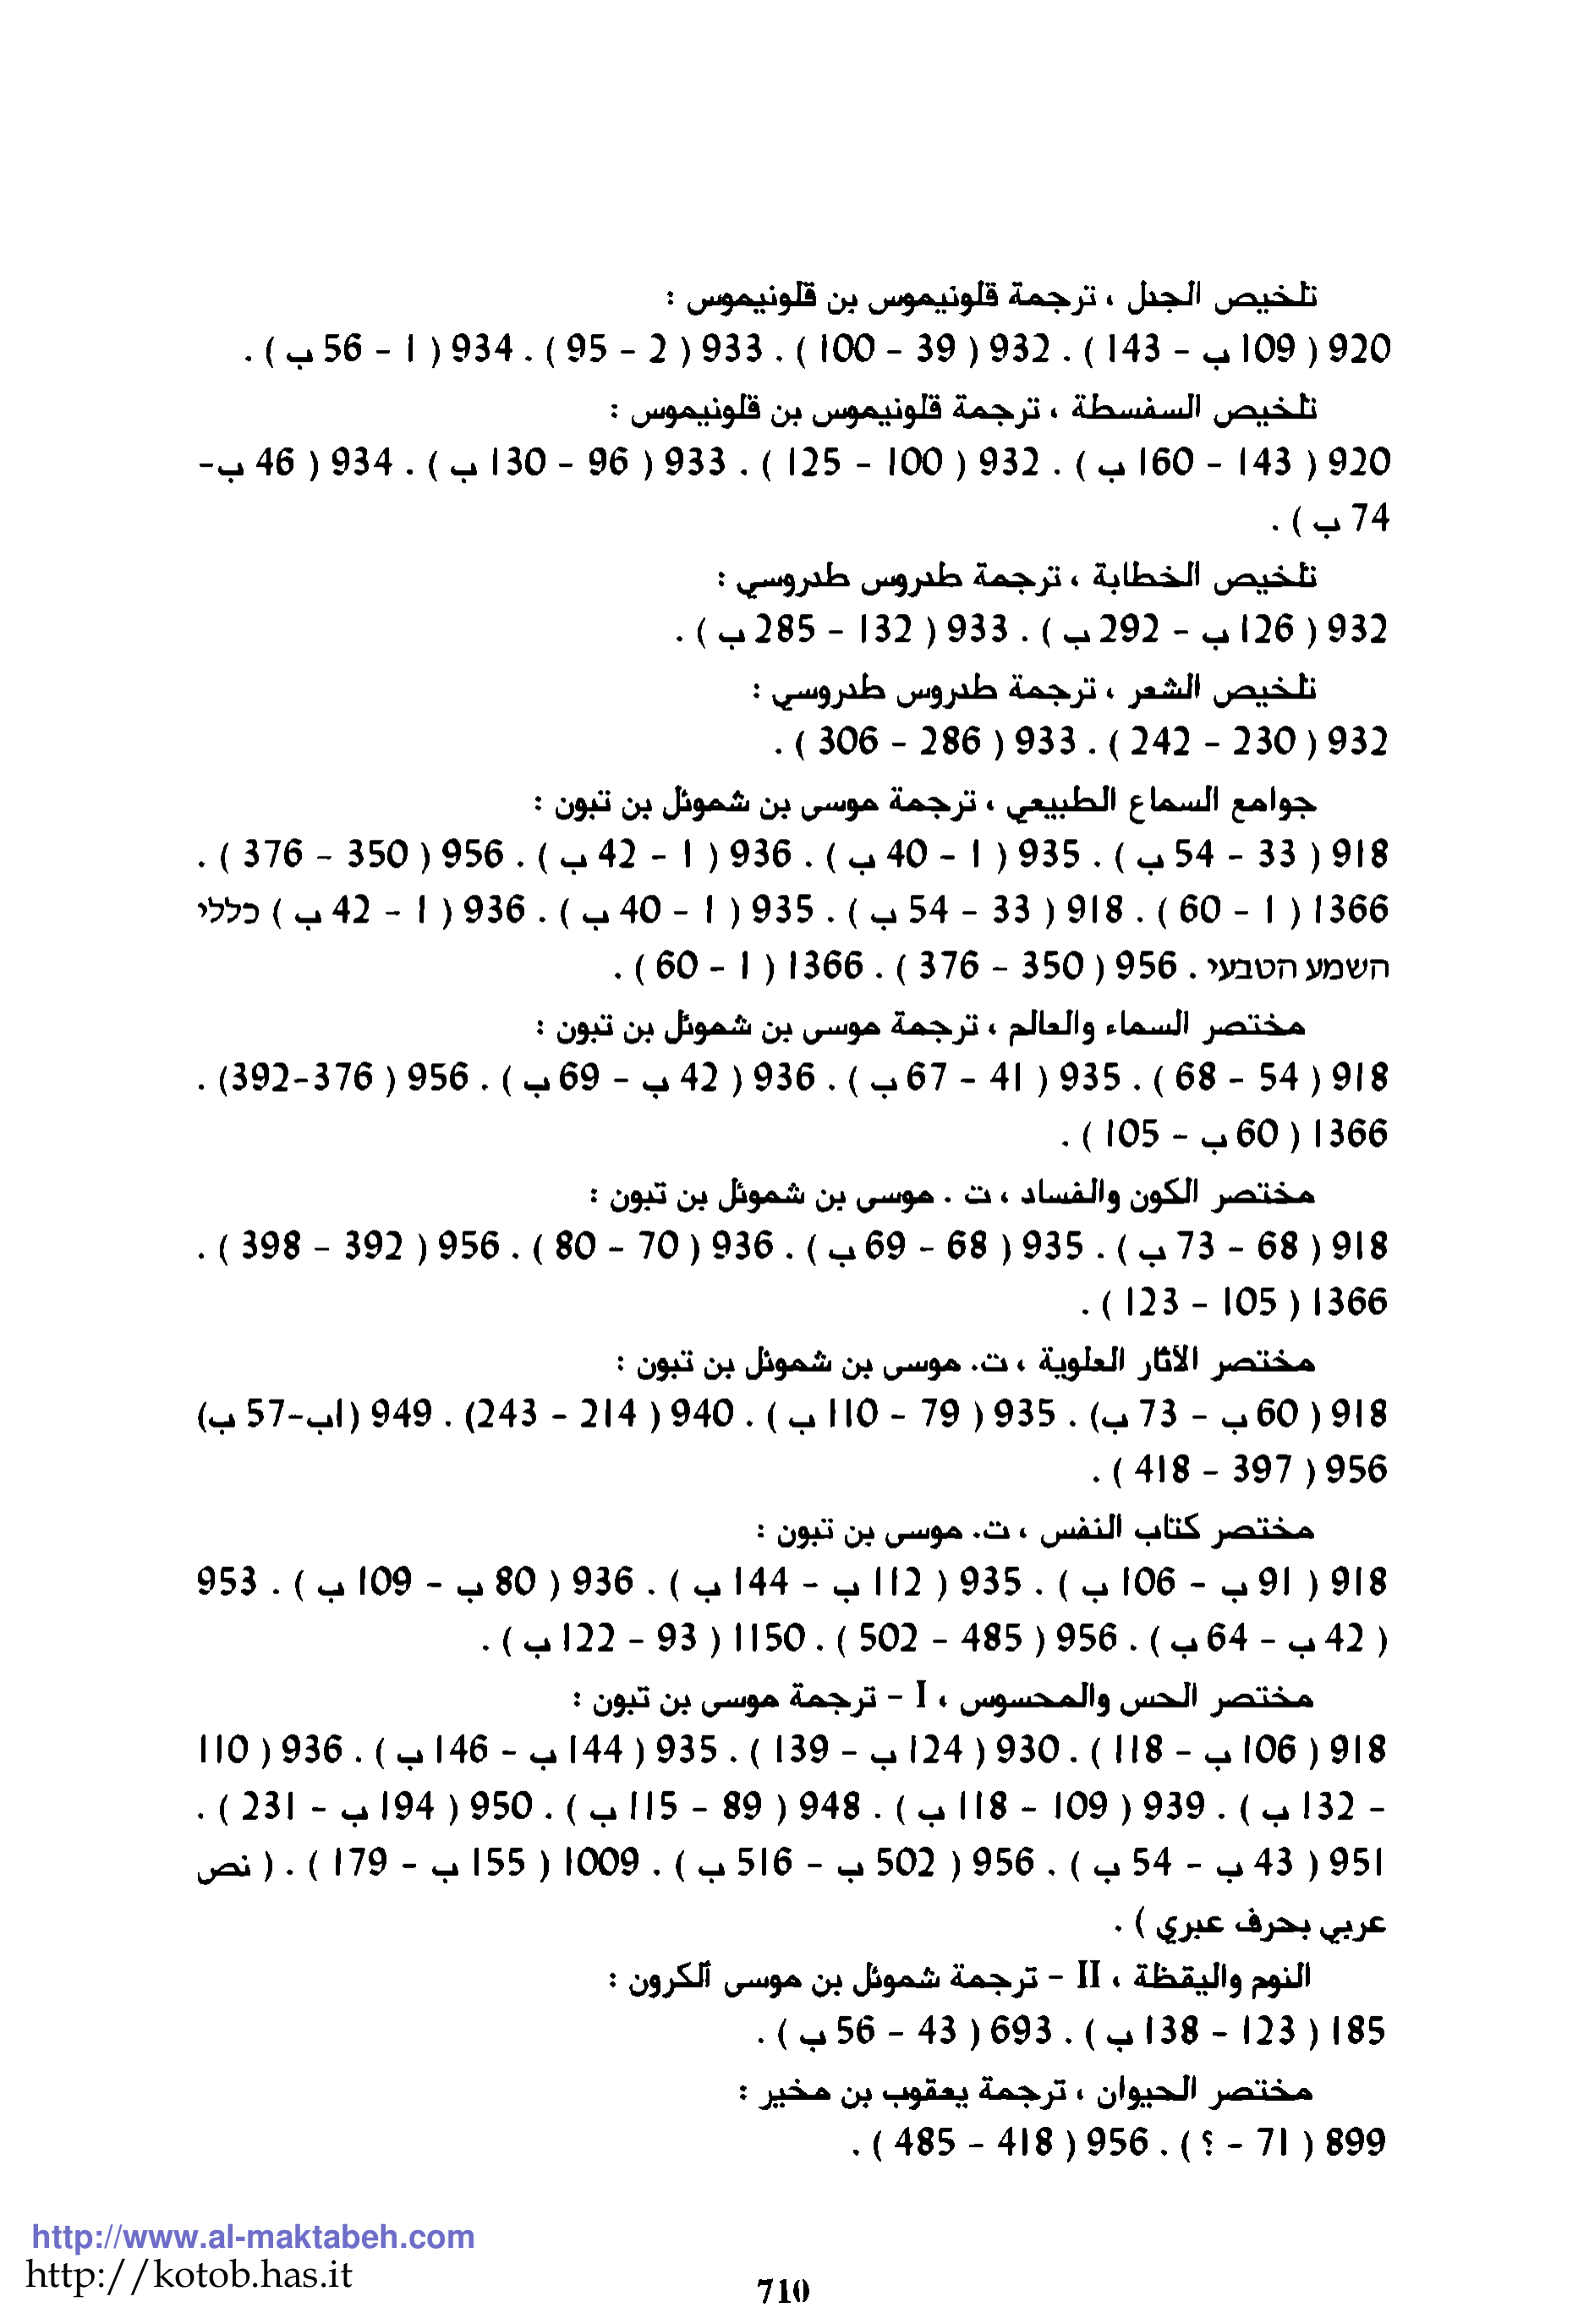 تلخيص الجدل ، ترجمة قلونيموس بن قلونيموس :
920 ( 109 ب – 143 ) . 932 ( 39 – 100 ) . 933 ( 2 – 95 ) . 934 ( 1 – 56 ب ) .
تلخيص السفسطة ، ترجمة قلونيموس بن قلونيموس :
920 ( 143 – 160 ب ) . 932 ( 100 – 125 ) . 933 ( 96 – 130 ب ) . 934 ( 46 ب-
74 ب ) .
تلخيص الخطابة ، ترجمة طدروس طدروسي :
932 ( 126 ب – 292 ب ) . 933 ( 132 – 285 ب ) .
تلخيص الشعر ، ترجمة طدروس طدروسي :
932 ( 230 – 242 ) . 933 ( 286 – 306 ) .
جوامع السماع الطبيعي ، ترجمة موسى بن شموئل بن تبون :
918 ( 33 – 54 ب ) . 935 ( 1 – 40 ب ) . 936 ( 1 – 42 ب ) . 956 ( 350 – 376 ) .
1366 ( 1 – 60 ) . 918 ( 33 – 54 ب ) . 935 ( 1 – 40 ب ) . 936 ( 1 – 42 ب ) כללי
השמע הטבעי . 956 ( 350 – 376 ) . 1366 ( 1 – 60 ) .
مختصر السماء والعالم ، ترجمة موسى بن شموئل بن تبون :
918 ( 54 – 68 ) . 935 ( 41 – 67 ب ) . 936 ( 42 ب – 69 ب ) . 956 ( 376-392) .
1366 ( 60 ب – 105 ) .
مختصر الكون والفساد ، ت . موسى بن شموئل بن تبون :
918 ( 68 – 73 ب ) . 935 ( 68 – 69 ب ) . 936 ( 70 – 80 ) . 956 ( 392 – 398 ) .
1366 ( 105 – 123 ) .
مختصر الآثار العلوية ، ت. موسى بن شموئل بن تبون :
918 ( 60 ب – 73 ب) . 935 ( 79 – 110 ب ) . 940 ( 214 – 243) . 949 (1ب-57 ب)
956 ( 397 – 418 ) .
مختصر كتاب النفس ، ت. موسى بن تبون :
918 ( 91 ب – 106 ب ) . 935 ( 112 ب – 144 ب ) . 936 ( 80 ب – 109 ب ) . 953
( 42 ب – 64 ب ) . 956 ( 485 – 502 ) . 1150 ( 93 – 122 ب ) .
مختصر الحس والمحسوس ، I – ترجمة موسى بن تبون :
918 ( 106 ب – 118 ) . 930 ( 124 ب – 139 ) . 935 ( 144 ب – 146 ب ) . 936 ( 110
– 132 ب ) . 939 ( 109 – 118 ب ) . 948 ( 89 – 115 ب ) . 950 ( 194 ب – 231 ) .
951 ( 43 ب – 54 ب ) . 956 ( 502 ب – 516 ب ) . 1009 ( 155 ب – 179 ) . ( نص
عربي بحرف عبري ) .
النوم واليقظة ، II – ترجمة شموئل بن موسى ألكرون :
185 ( 123 – 138 ب ) . 693 ( 43 – 56 ب ) .
مختصر الحيوان ، ترجمة يعقوب بن مخير :
899 ( 71 – ؟ ) . 956 ( 418 – 485 ) .
http://www.al-maktabeh.com
http://kotob.has.it
710